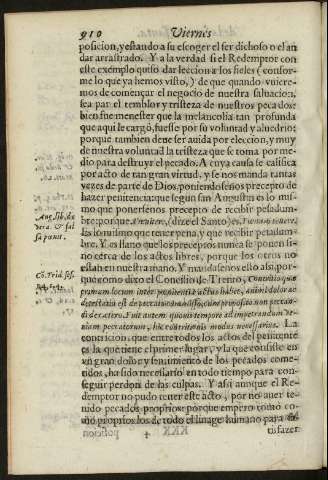 910 Viernes
posicion, y estando a su escoger el ser dichoso o el an
dar arrastrado. Y a la verdad si el Redemptor con
este exemplo quiso dar leccion a los fieles (confor-
me lo que ya hemos visto,) de que quando vuiere-
mos de començar el negocio de nuestra saluacion,
sea por el temblor y tristeza de nuestros pecados:
bien fue menester que la melancolia tan profunda
que aqui le cargó, fuesse por su voluntad y aluedrio;
porque tambien deue ser auida por eleccion, y muy
de nuestra voluntad la tristeza que se toma por me-
dio para destruyr el pecado. A cuya causa se califica
por acto de tan gran virtud, y se nos manda tantas
vezes de parte de Dios, poniendosenos precepto de
hazer penitencia: que segun san Augustin es lo mis
mo que ponersenos precepto de recibir pesadum-
bre: porque (dize el Santo) es
lo mismo que tener pena, y que recebir pesadum-
bre. Y es llano que los preceptos nunca se ponen si-
no cerca de los actos libres, porque los otros no
estan en nuestra mano. Y mandasenos esto assi: por-
que como dixo el Concilio de Trento, Contritio quæ
primum locum inter pœnitentiæ actus habet, animi dolor ac
detestatio est de peccato commisso, cum proposito non peccan
di de cætero. Fuit autem quouis tempore ad impetrandum ve-
niam peccatorum, hic contritionis modus necessarius. La
contricion que entre todos los actos del penitente
es la que tiene el primer lugar, y la que consiste en
vn gran dolor y sentimiento de los pecados come-
tidos, ha sido necessario en todo tiempo para con-
seguir perdon de las culpas. Y assi aunque el Re-
demptor no pudo tener este acto, por no auer te-
nido pecados proprios: porque empero tomò co-
mo proprios los de todo el linage humano para sa-
KKK 4 tisfazer
Aug. lib. de
vera & fal
sa pœnit.
Cō. Trid. ses.